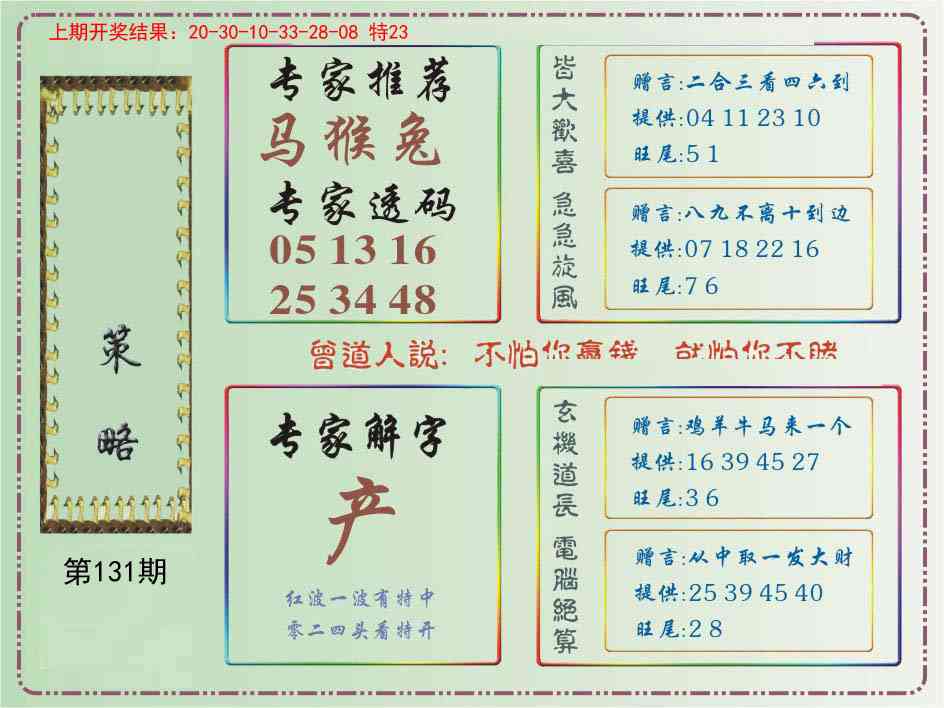 上期开奖结果：20-30-10-33-28-08 特23
策
略
第131期
专家推荐
马猴兔
专家透码
05 13 16
25 34 48
皆大歡喜
赠言:二合三看四六到
提供:04 11 23 10
旺尾:5 1
急急旋風
赠言:八九不离十到边
提供:07 18 22 16
旺尾:7 6
曾道人説: 不怕你赢錢 就怕你不賭
专家解字
产
红波一波有特中
零二四头看特开
玄機道長
赠言:鸡羊牛马来一个
提供:16 39 45 27
旺尾:3 6
電腦絕算
赠言:从中取一发大财
提供:25 39 45 40
旺尾:2 8